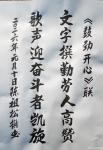 《鼓劲开心》联
文字撰勤劳人高赞
歌声迎奋斗者凯旋
二〇二六年元月十日陈祖松撰